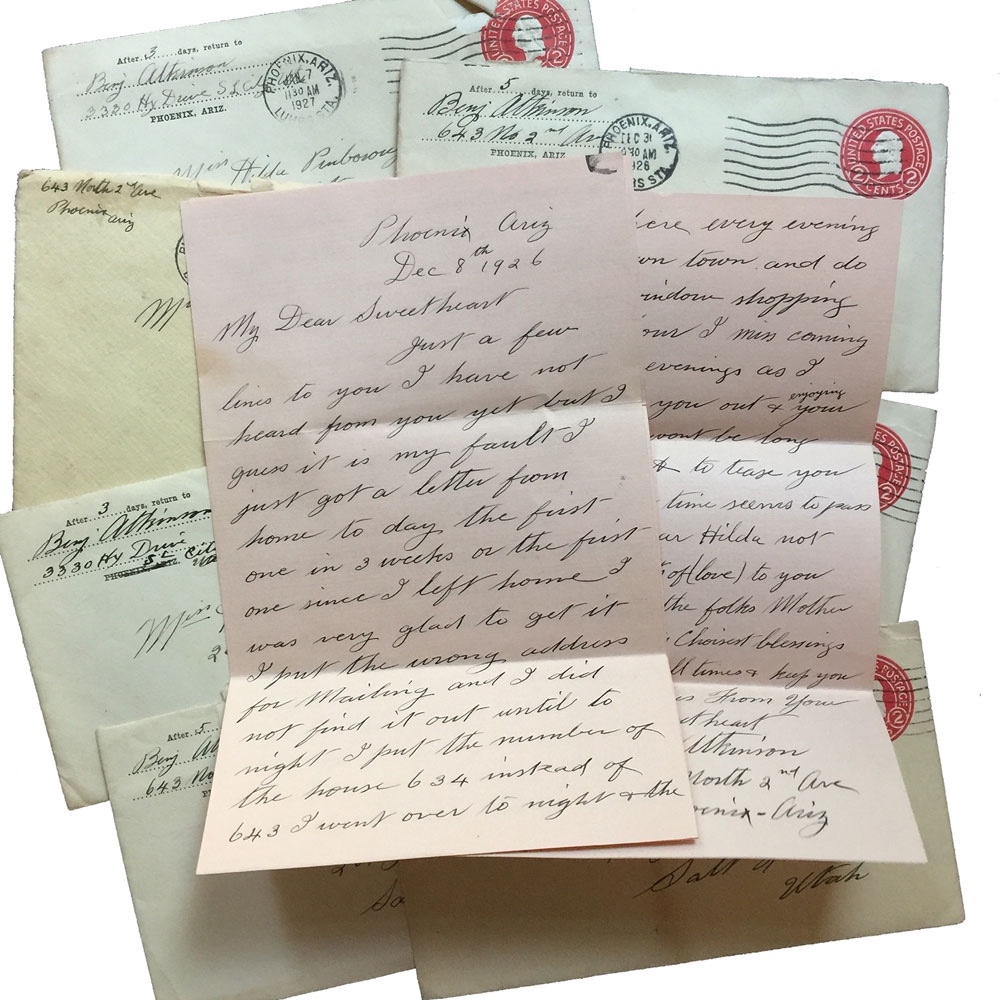 After 3 days, return to
Benj Atkinson
3330 Hy Drive S L
PHOENIX, ARIZ.
PHOENIX, ARIZ.
JAN 7
1130 AM
1927
UNITED STATES POSTAGE
2 2
Miss Hilda
After 5 days, return to
Benj Atkinson
643 No 2nd Ave
PHOENIX, ARIZ
PHOENIX, ARIZ.
DEC 31
30 AM
1926
UNITED STATES POSTAGE
2 2
CENTS
643 North 2 Ave
Phoenix
Ariz
Phoenix Ariz
Dec 8th 1926
My Dear Sweetheart
Just a few
lines to you I have not
heard from you yet but I
guess it is my fault I
just got a letter from
home to day the first
one in 3 weeks or the first
one since I left home I
was very glad to get it
I put the wrong address
for Mailing and I did
not find it out until to
night I put the number of
the house 634 instead of
643 I went over to night & the
every evening
town and do
window shopping
I miss coming
evenings as I
you out & enjoying your
wont be long
to tease you
time seems to pass
Hilda not
of (love) to you
the folks Mother
Choisest blessings
times & keep you
From Your
Atkinson
North 2nd Ave
- Ariz
After 3 days, return to
Benj Atkinson
3330 Hy Drive
PHOENIX, ARIZ.
SL City
Miss
POSTAGE
2
After 5
Benj
643 No
POSTAGE
2
Salt
Utah